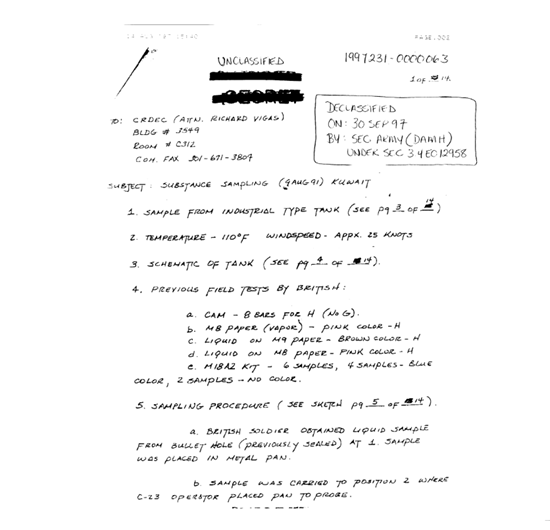 PAGE.002
UNCLASSIFIED
1997231-0000063
1 OF 14
SECRET
DECLASSIFIED
ON: 30 SEP 97
BY: SEC ARMY (DAMH)
UNDER SEC 3.4 EO 12958
TO: CRDEC (ATTN. RICHARD VIGAS)
BLDG # 3549
ROOM # C312
COM. FAX 301-671-3809
SUBJECT: SUBSTANCE SAMPLING (9AUG91) KUWAIT
1. SAMPLE FROM INDUSTRIAL TYPE TANK (SEE PG 3 OF 14)
2. TEMPERATURE - 110°F WINDSPEED - APPX. 25 KNOTS
3. SCHEMATIC OF TANK (SEE PG 4 OF 14).
4. PREVIOUS FIELD TESTS BY BRITISH:
a. CAM - 8 BARS FOR H (NO G).
b. M8 PAPER (VAPOR) - PINK COLOR - H
c. LIQUID ON M9 PAPER - BROWN COLOR - H
d. LIQUID ON M8 PAPER - PINK COLOR - H
e. M18A2 KIT - 6 SAMPLES, 4 SAMPLES - BLUE
COLOR, 2 SAMPLES - NO COLOR.
5. SAMPLING PROCEDURE (SEE SKETCH PG 5 OF 14).
a. BRITISH SOLDIER OBTAINED LIQUID SAMPLE
FROM BULLET HOLE (PREVIOUSLY SEALED) AT 1. SAMPLE
WAS PLACED IN METAL PAN.
b. SAMPLE WAS CARRIED TO POSITION 2 WHERE
C-23 OPERATOR PLACED PAN TO PROBE.